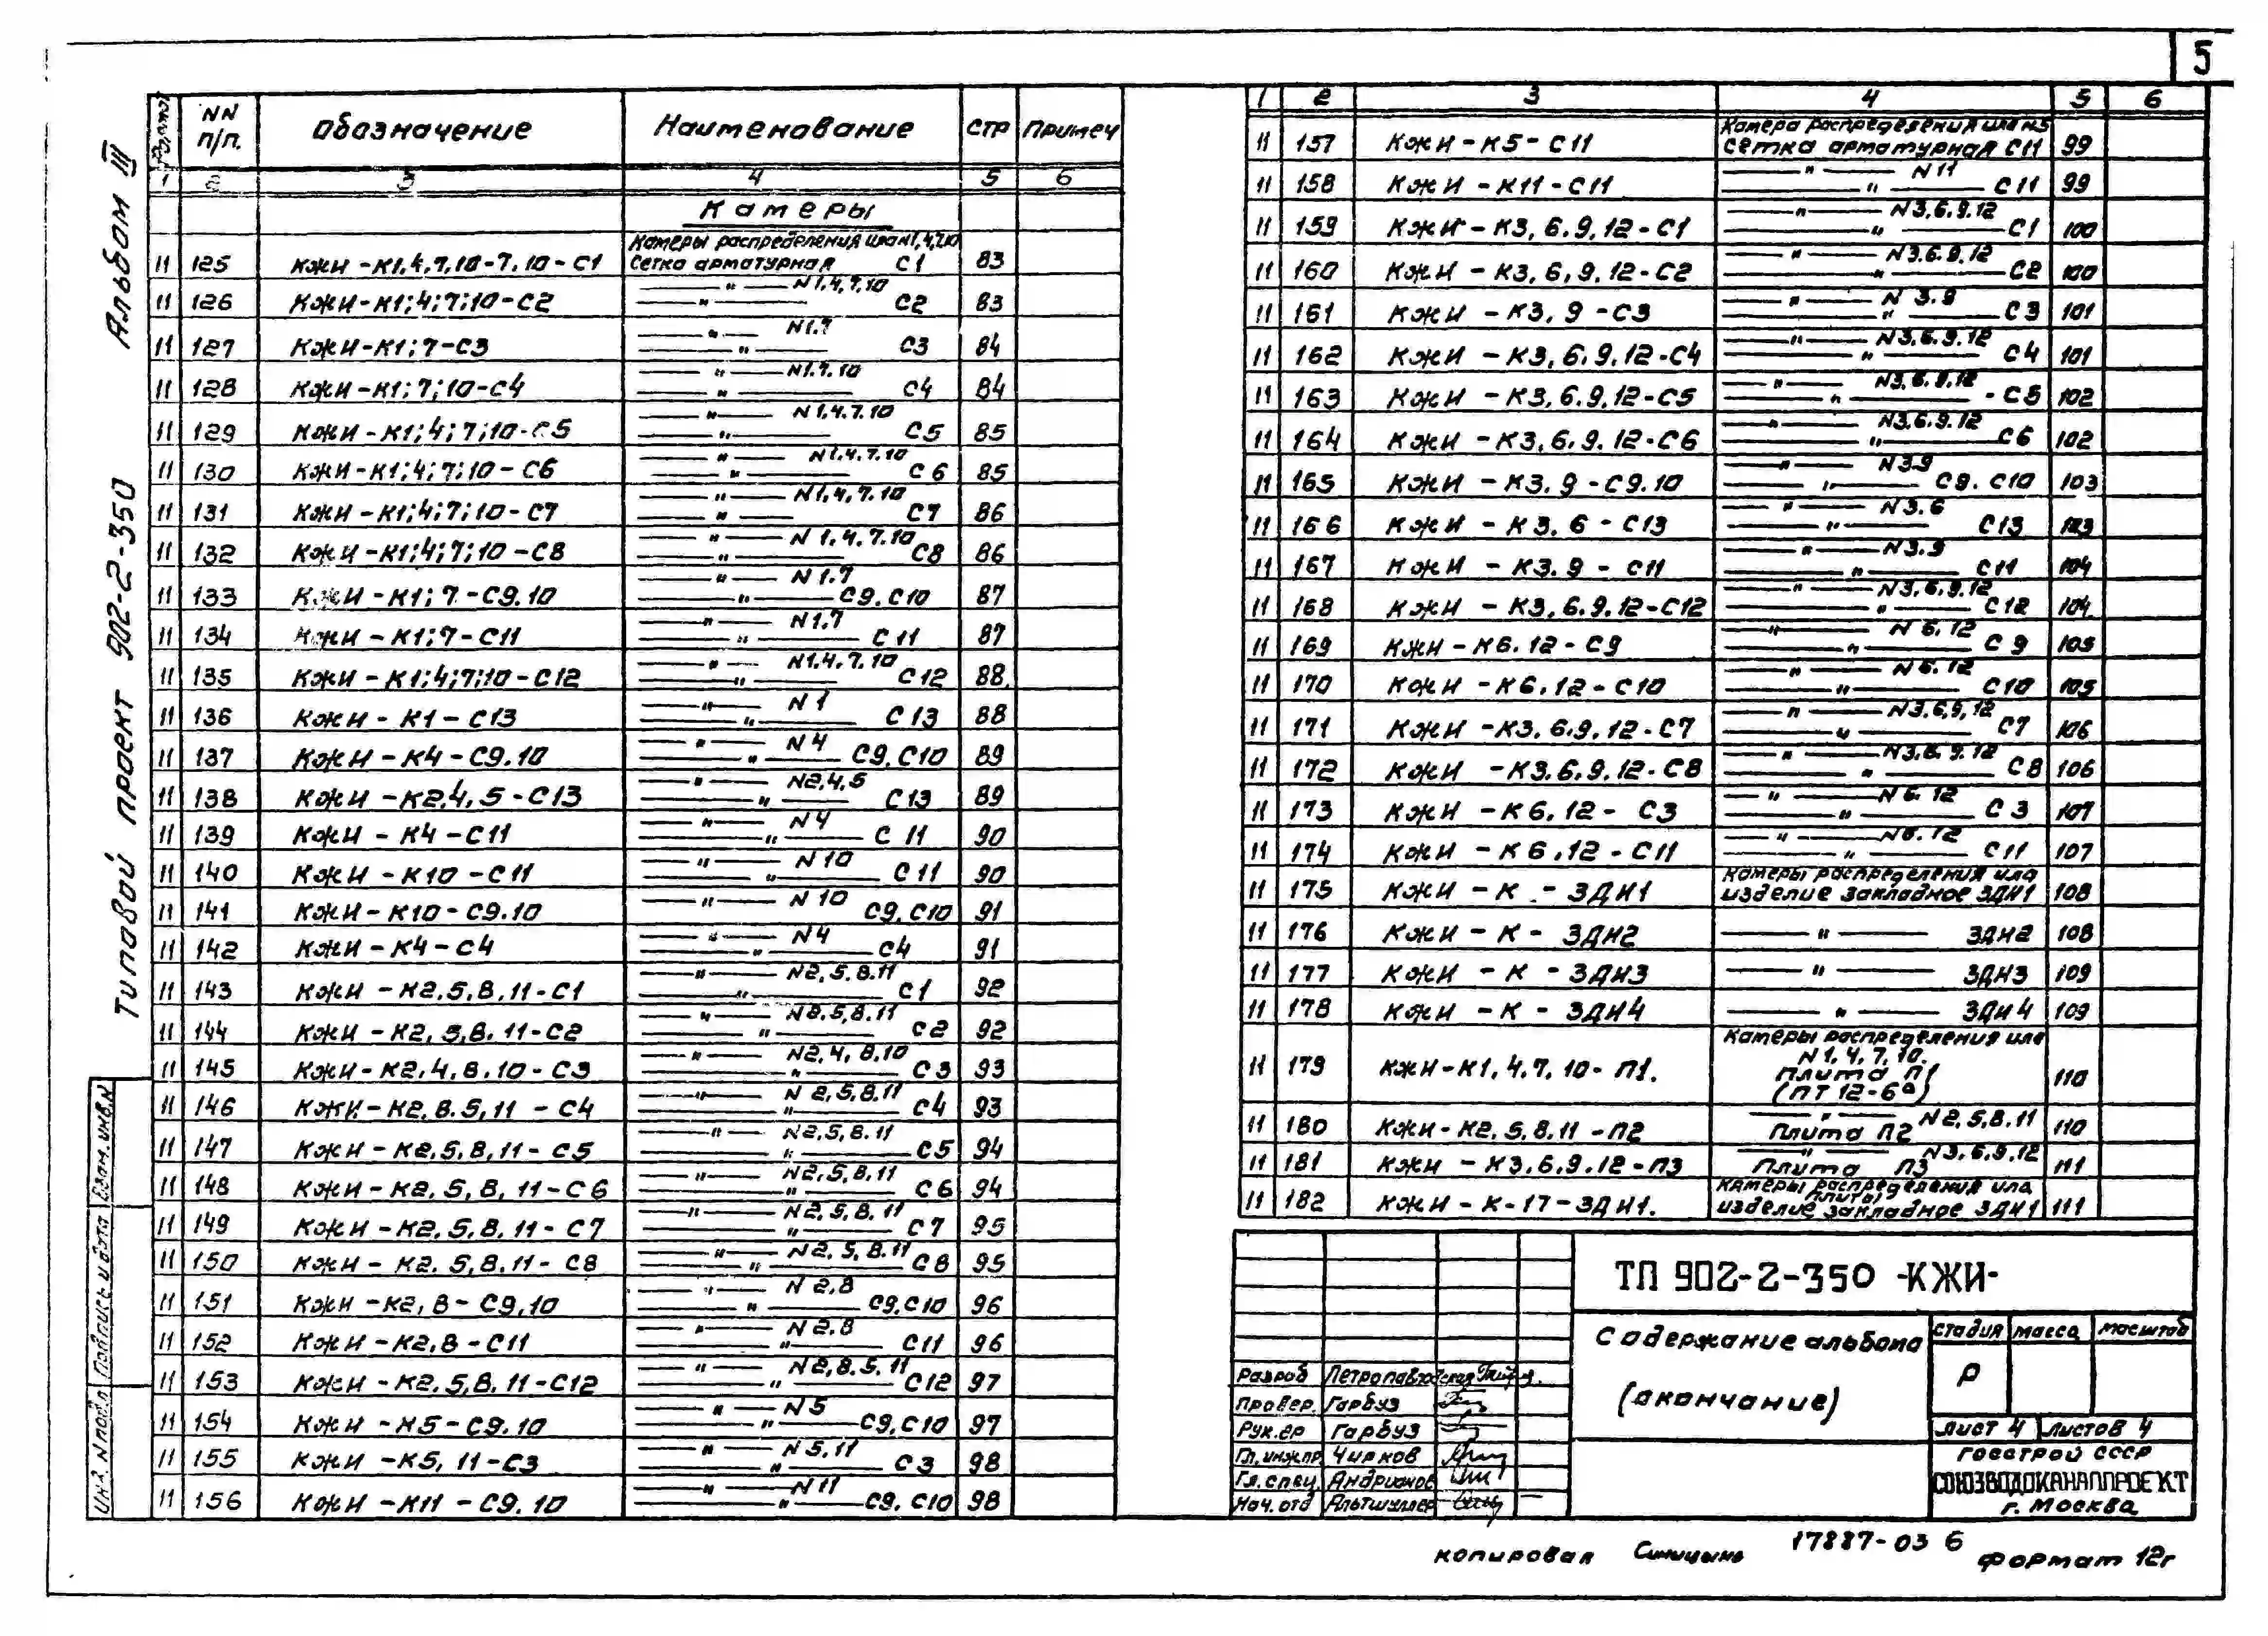 5
Альбом III
Типовой проект 902-2-350
Формат NN п/п. Обозначение Наименование стр Примеч
1 2 3 4 5 6
Камеры
Камеры распределения ила N1,4,7,10
11 125 КЖИ-К1,4,7,10-7,10-С1 Сетка арматурная С1 83
—"— N1,4,7,10
11 126 КЖИ-К1;4;7;10-С2 —"— С2 83
—"— N1.7
11 127 КЖИ-К1;7-С3 —"— С3 84
—"— N1.7.10
11 128 КЖИ-К1;7;10-С4 —"— С4 84
—"— N1,4.7.10
11 129 КЖИ-К1;4;7;10-С5 —"— С5 85
—"— N1,4,7.10
11 130 КЖИ-К1;4;7;10-С6 —"— С6 85
—"— N1,4,7.10
11 131 КЖИ-К1;4;7;10-С7 —"— С7 86
—"— N1,4.7.10
11 132 КЖИ-К1;4;7;10-С8 —"— С8 86
—"— N1.7
11 133 КЖИ-К1;7-С9.10 —"— С9.С10 87
—"— N1,7
11 134 КЖИ-К1;7-С11 —"— С11 87
—"— N1.4.7.10
11 135 КЖИ-К1;4;7;10-С12 —"— С12 88
—"— N1
11 136 КЖИ-К1-С13 —"— С13 88
—"— N4
11 137 КЖИ-К4-С9.10 —"— С9,С10 89
—"— N2,4,5
11 138 КЖИ-К2,4,5-С13 —"— С13 89
—"— N4
11 139 КЖИ-К4-С11 —"— С11 90
—"— N10
11 140 КЖИ-К10-С11 —"— С11 90
—"— N10
11 141 КЖИ-К10-С9.10 С9,С10 91
—"— N4
11 142 КЖИ-К4-С4 —"— С4 91
—"— N2,5.8.11
11 143 КЖИ-К2,5,8,11-С1 —"— С1 92
—"— N2.5,8.11
11 144 КЖИ-К2,5,8,11-С2 —"— С2 92
—"— N2,4,8,10
11 145 КЖИ-К2,4,8,10-С3 —"— С3 93
—"— N2,5,8.11
11 146 КЖИ-К2,8.5,11-С4 —"— С4 93
—"— N2,5,8.11
11 147 КЖИ-К2,5,8,11-С5 —"— С5 94
—"— N2,5,8,11
11 148 КЖИ-К2,5,8,11-С6 —"— С6 94
—"— N2,5,8.11
11 149 КЖИ-К2,5,8,11-С7 —"— С7 95
—"— N2,5,8.11
11 150 КЖИ-К2.5,8.11-С8 —"— С8 95
—"— N2,8
11 151 КЖИ-К2,8-С9,10 —"— С9,С10 96
—"— N2.8
11 152 КЖИ-К2,8-С11 —"— С11 96
—"— N2,8.5.11
11 153 КЖИ-К2.5,8.11-С12 —"— С12 97
—"— N5
11 154 КЖИ-К5-С9.10 —"— С9,С10 97
—"— N5,11
11 155 КЖИ-К5,11-С3 —"— С3 98
—"— N11
11 156 КЖИ-К11-С9.10 —"— С9.С10 98
1 2 3 4 5 6
Камера распределения ила N5
11 157 КЖИ-К5-С11 Сетка арматурная С11 99
—"— N11
11 158 КЖИ-К11-С11 —"— С11 99
—"— N3,6.9.12
11 159 КЖИ-К3,6.9,12-С1 —"— С1 100
—"— N3.6.9,12
11 160 КЖИ-К3,6,9.12-С2 —"— С2 100
—"— N3.9
11 161 КЖИ-К3,9-С3 —"— С3 101
—"— N3,6.9.12
11 162 КЖИ-К3,6.9,12-С4 —"— С4 101
—"— N3,6.9,12
11 163 КЖИ-К3,6.9,12-С5 —"— -С5 102
—"— N3,6.9.12
11 164 КЖИ-К3,6,9.12-С6 —"— С6 102
—"— N3.9
11 165 КЖИ-К3.9-С9.10 —"— С9.С10 103
—"— N3.6
11 166 КЖИ-К3.6-С13 —"— С13 103
—"— N3.9
11 167 КЖИ-К3.9-С11 —"— С11 104
—"— N3,6,9.12
11 168 КЖИ-К3,6.9,12-С12 —"— С12 104
—"— N6.12
11 169 КЖИ-К6.12-С9 —"— С9 105
—"— N6.12
11 170 КЖИ-К6.12-С10 —"— С10 105
—"— N3.6,9,12
11 171 КЖИ-К3.6.9,12-С7 —"— С7 106
—"— N3,6.9.12
11 172 КЖИ-К3.6.9.12-С8 —"— С8 106
—"— N6.12
11 173 КЖИ-К6,12-С3 —"— С3 107
—"— N6.12
11 174 КЖИ-К6.12-С11 —"— С11 107
Камеры распределения ила
11 175 КЖИ-К-ЗДИ1 изделие закладное ЗДИ1 108
11 176 КЖИ-К-ЗДИ2 —"— ЗДИ2 108
11 177 КЖИ-К-ЗДИ3 —"— ЗДИ3 109
11 178 КЖИ-К-ЗДИ4 —"— ЗДИ4 109
Камеры распределения ила
N1,4,7,10.
11 179 КЖИ-К1,4.7,10-П1. Плита П1 110
(ПТ12-6а)
—"— N2,5,8.11
11 180 КЖИ-К2,5,8.11-П2 Плита П2 110
—"— N3,6.9.12
11 181 КЖИ-К3,6.9.12-П3 Плита П3 111
Камеры распределения ила
плиты
11 182 КЖИ-К-17-ЗДИ1. изделие закладное ЗДИ1 111
ТП 902-2-350 -КЖИ-
Содержание альбома
(окончание)
стадия масса масштаб
Р
Лист 4 Листов 4
Госстрой СССР
СОЮЗВОДОКАНАЛПРОЕКТ
г. Москва
Разраб Петропавловская
Провер. Гарбуз
Рук.гр Гарбуз
Гл.инж.пр. Чирков
Гл.спец. Андрианов
Нач.отд Альтшуллер
Взам. инв.N
Подпись и дата
Инв. N подл
17887-03 6
копировал Синицына
формат 12г